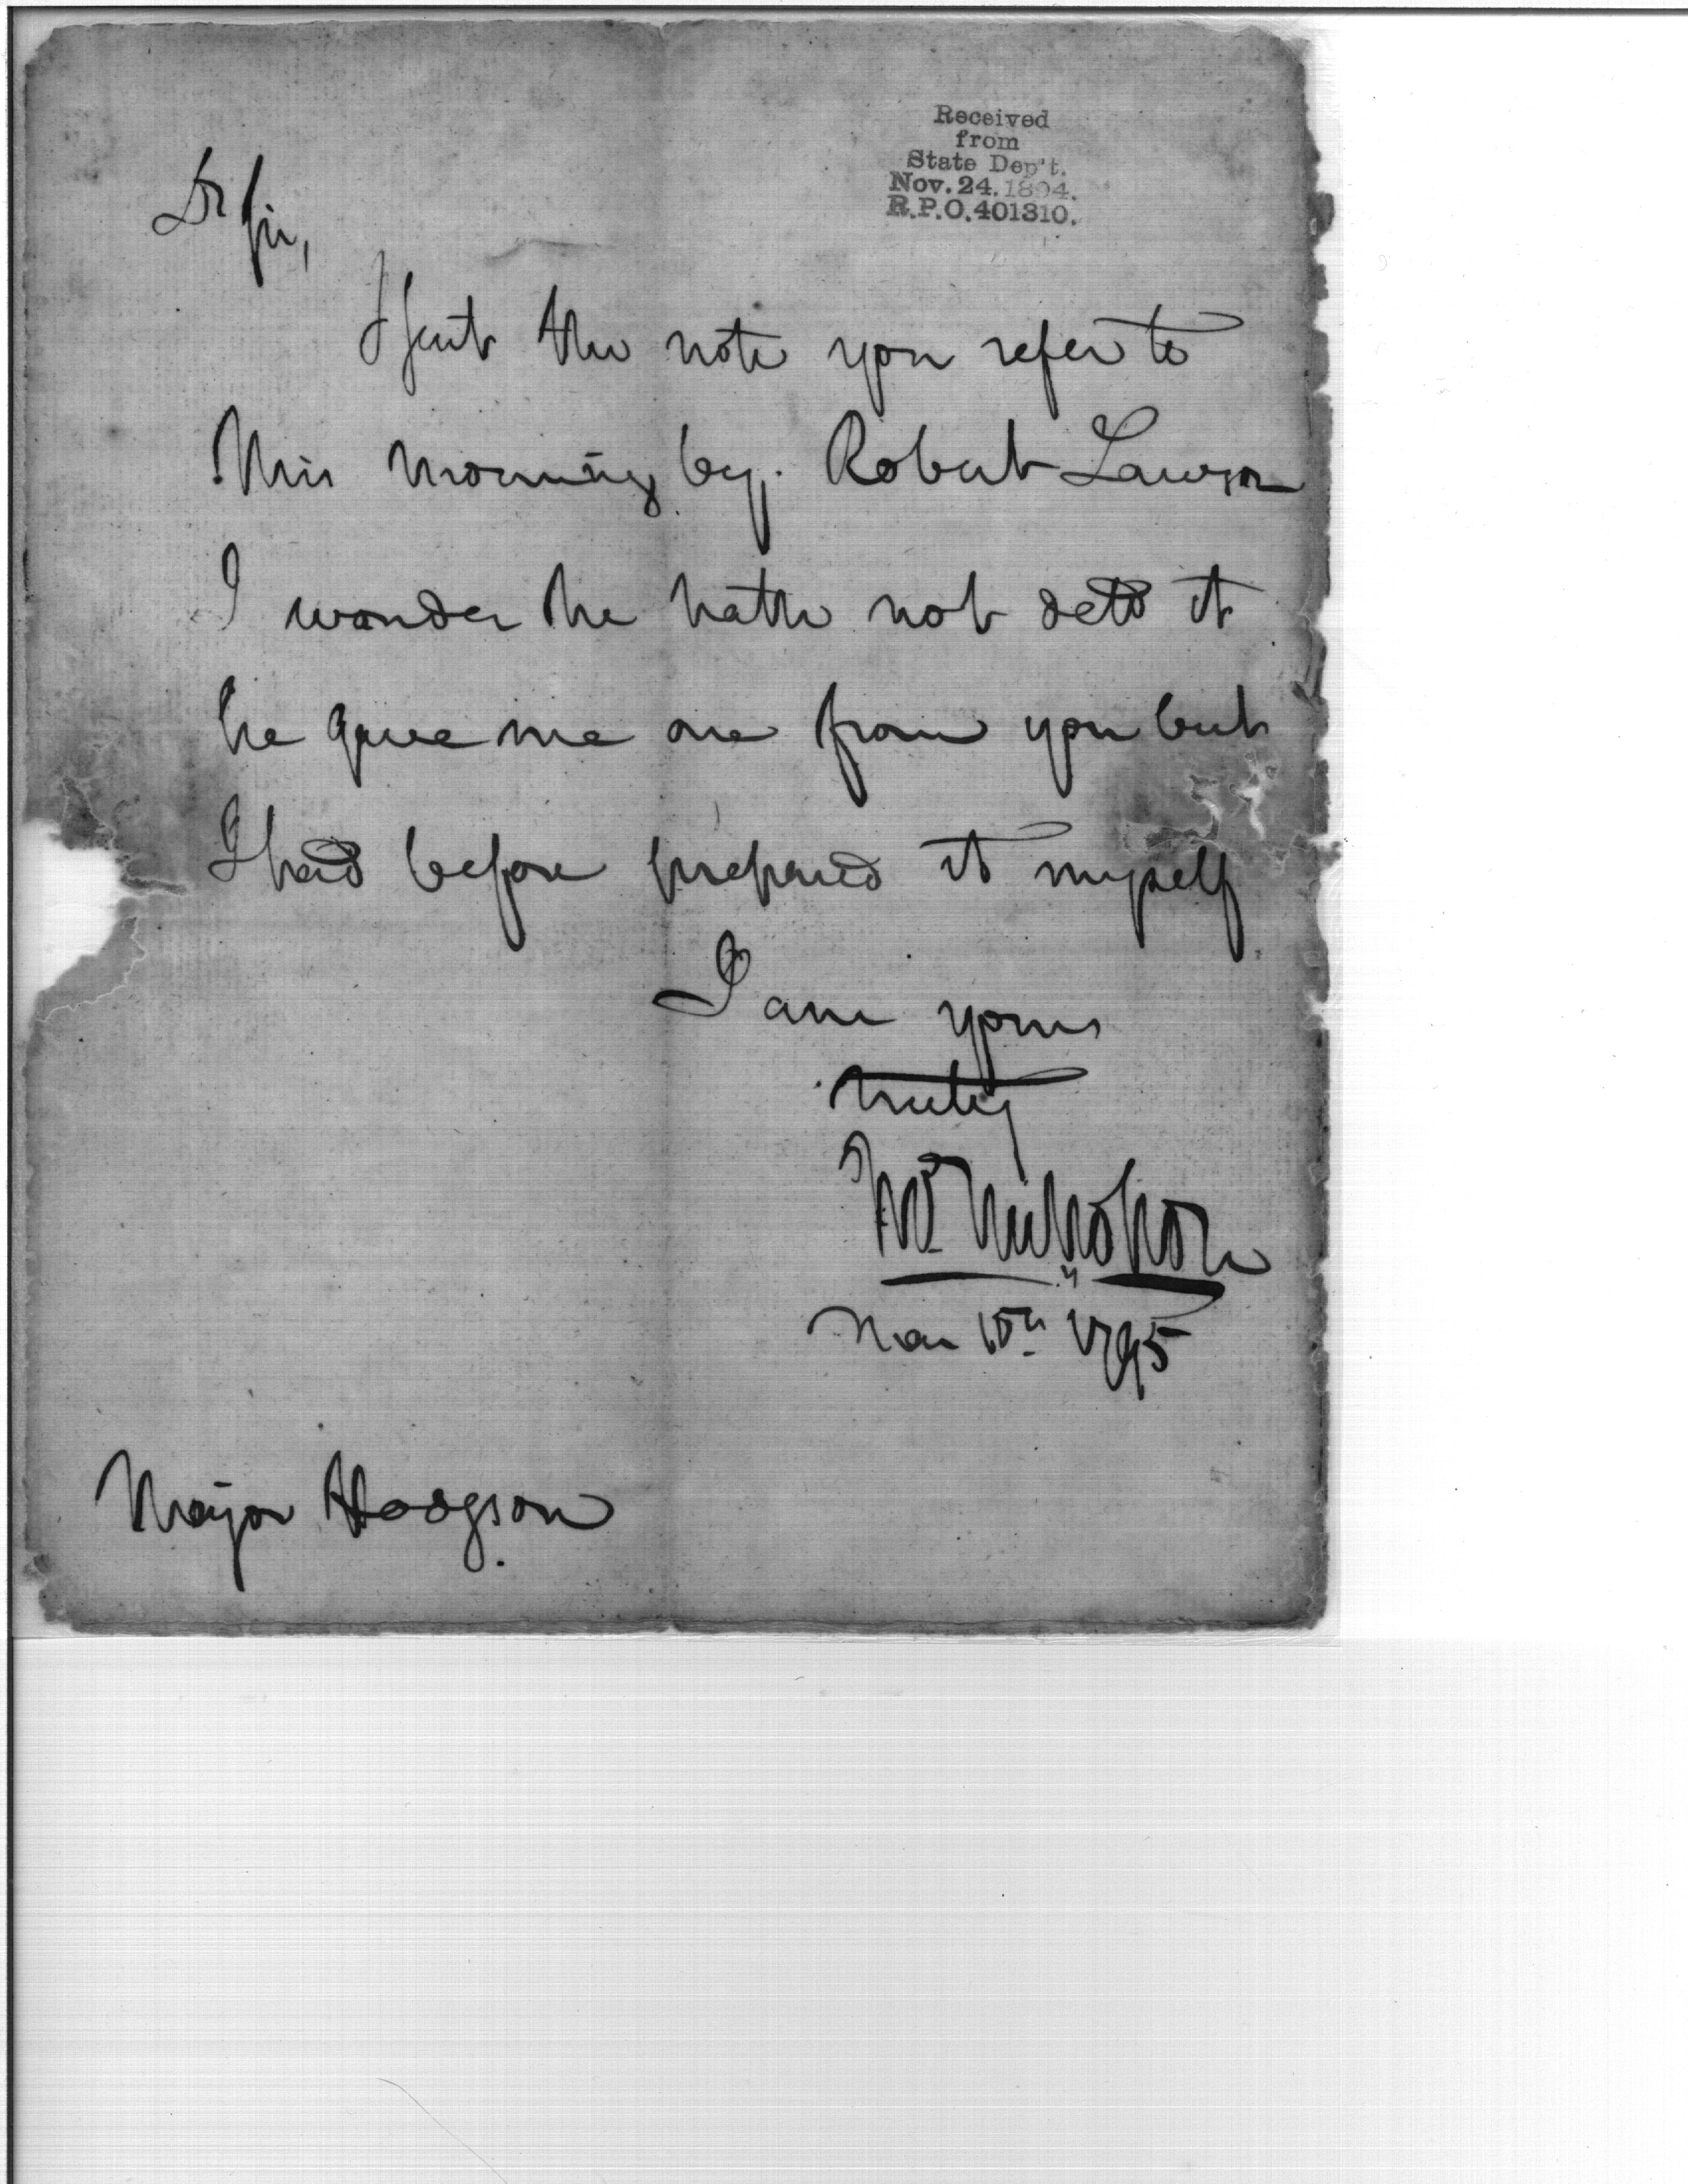 Received
from
State Dep't.
Nov. 24. 1894.
R.P.O. 401310.
Dr Sir,
I sent the note you refer to
this morning by Robert Lawson
I wonder he hath not deld it
he gave me one from you but
I had before prepared it myself
I am yours
truly
Nov 15th 1795
Major Hodgson